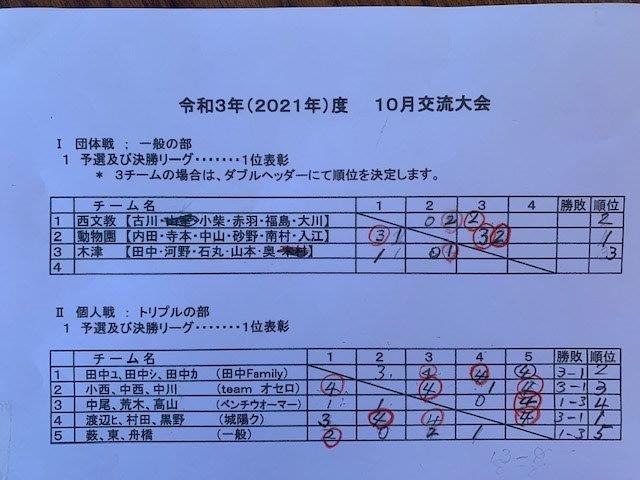 令和3年(2021年)度　10月交流大会
Ⅰ 団体戦 ; 一般の部
1 予選及び決勝リーグ・・・・・・・1位表彰
* 3チームの場合は、ダブルヘッダーにて順位を決定します。
チーム名 1 2 3 4 勝敗 順位
1 西文教 【古川・小柴・赤羽・福島・大川】 0 2 2 2
2 動物園 【内田・寺本・中山・砂野・南村・入江】 3 1 3 2 1
3 木津 【田中・河野・石丸・山本・奥・】 1 0 1 3
4
Ⅱ 個人戦 ; トリプルの部
1 予選及び決勝リーグ・・・・・・・1位表彰
チーム名 1 2 3 4 5 勝敗 順位
1 田中ュ、田中シ、田中カ (田中Family) 3 4 4 3-1 2
2 小西、中西、中川 (team オセロ) 4 4 1 4 3-1 3
3 中尾、荒木、高山 (ベンチウォーマー) 1 1 0 4 1-3 4
4 渡辺ヒ、村田、黒野 (城陽ク) 3 4 4 4 3-1 1
5 薮、東、舟橋 (一般) 2 0 2 1 1-3 5